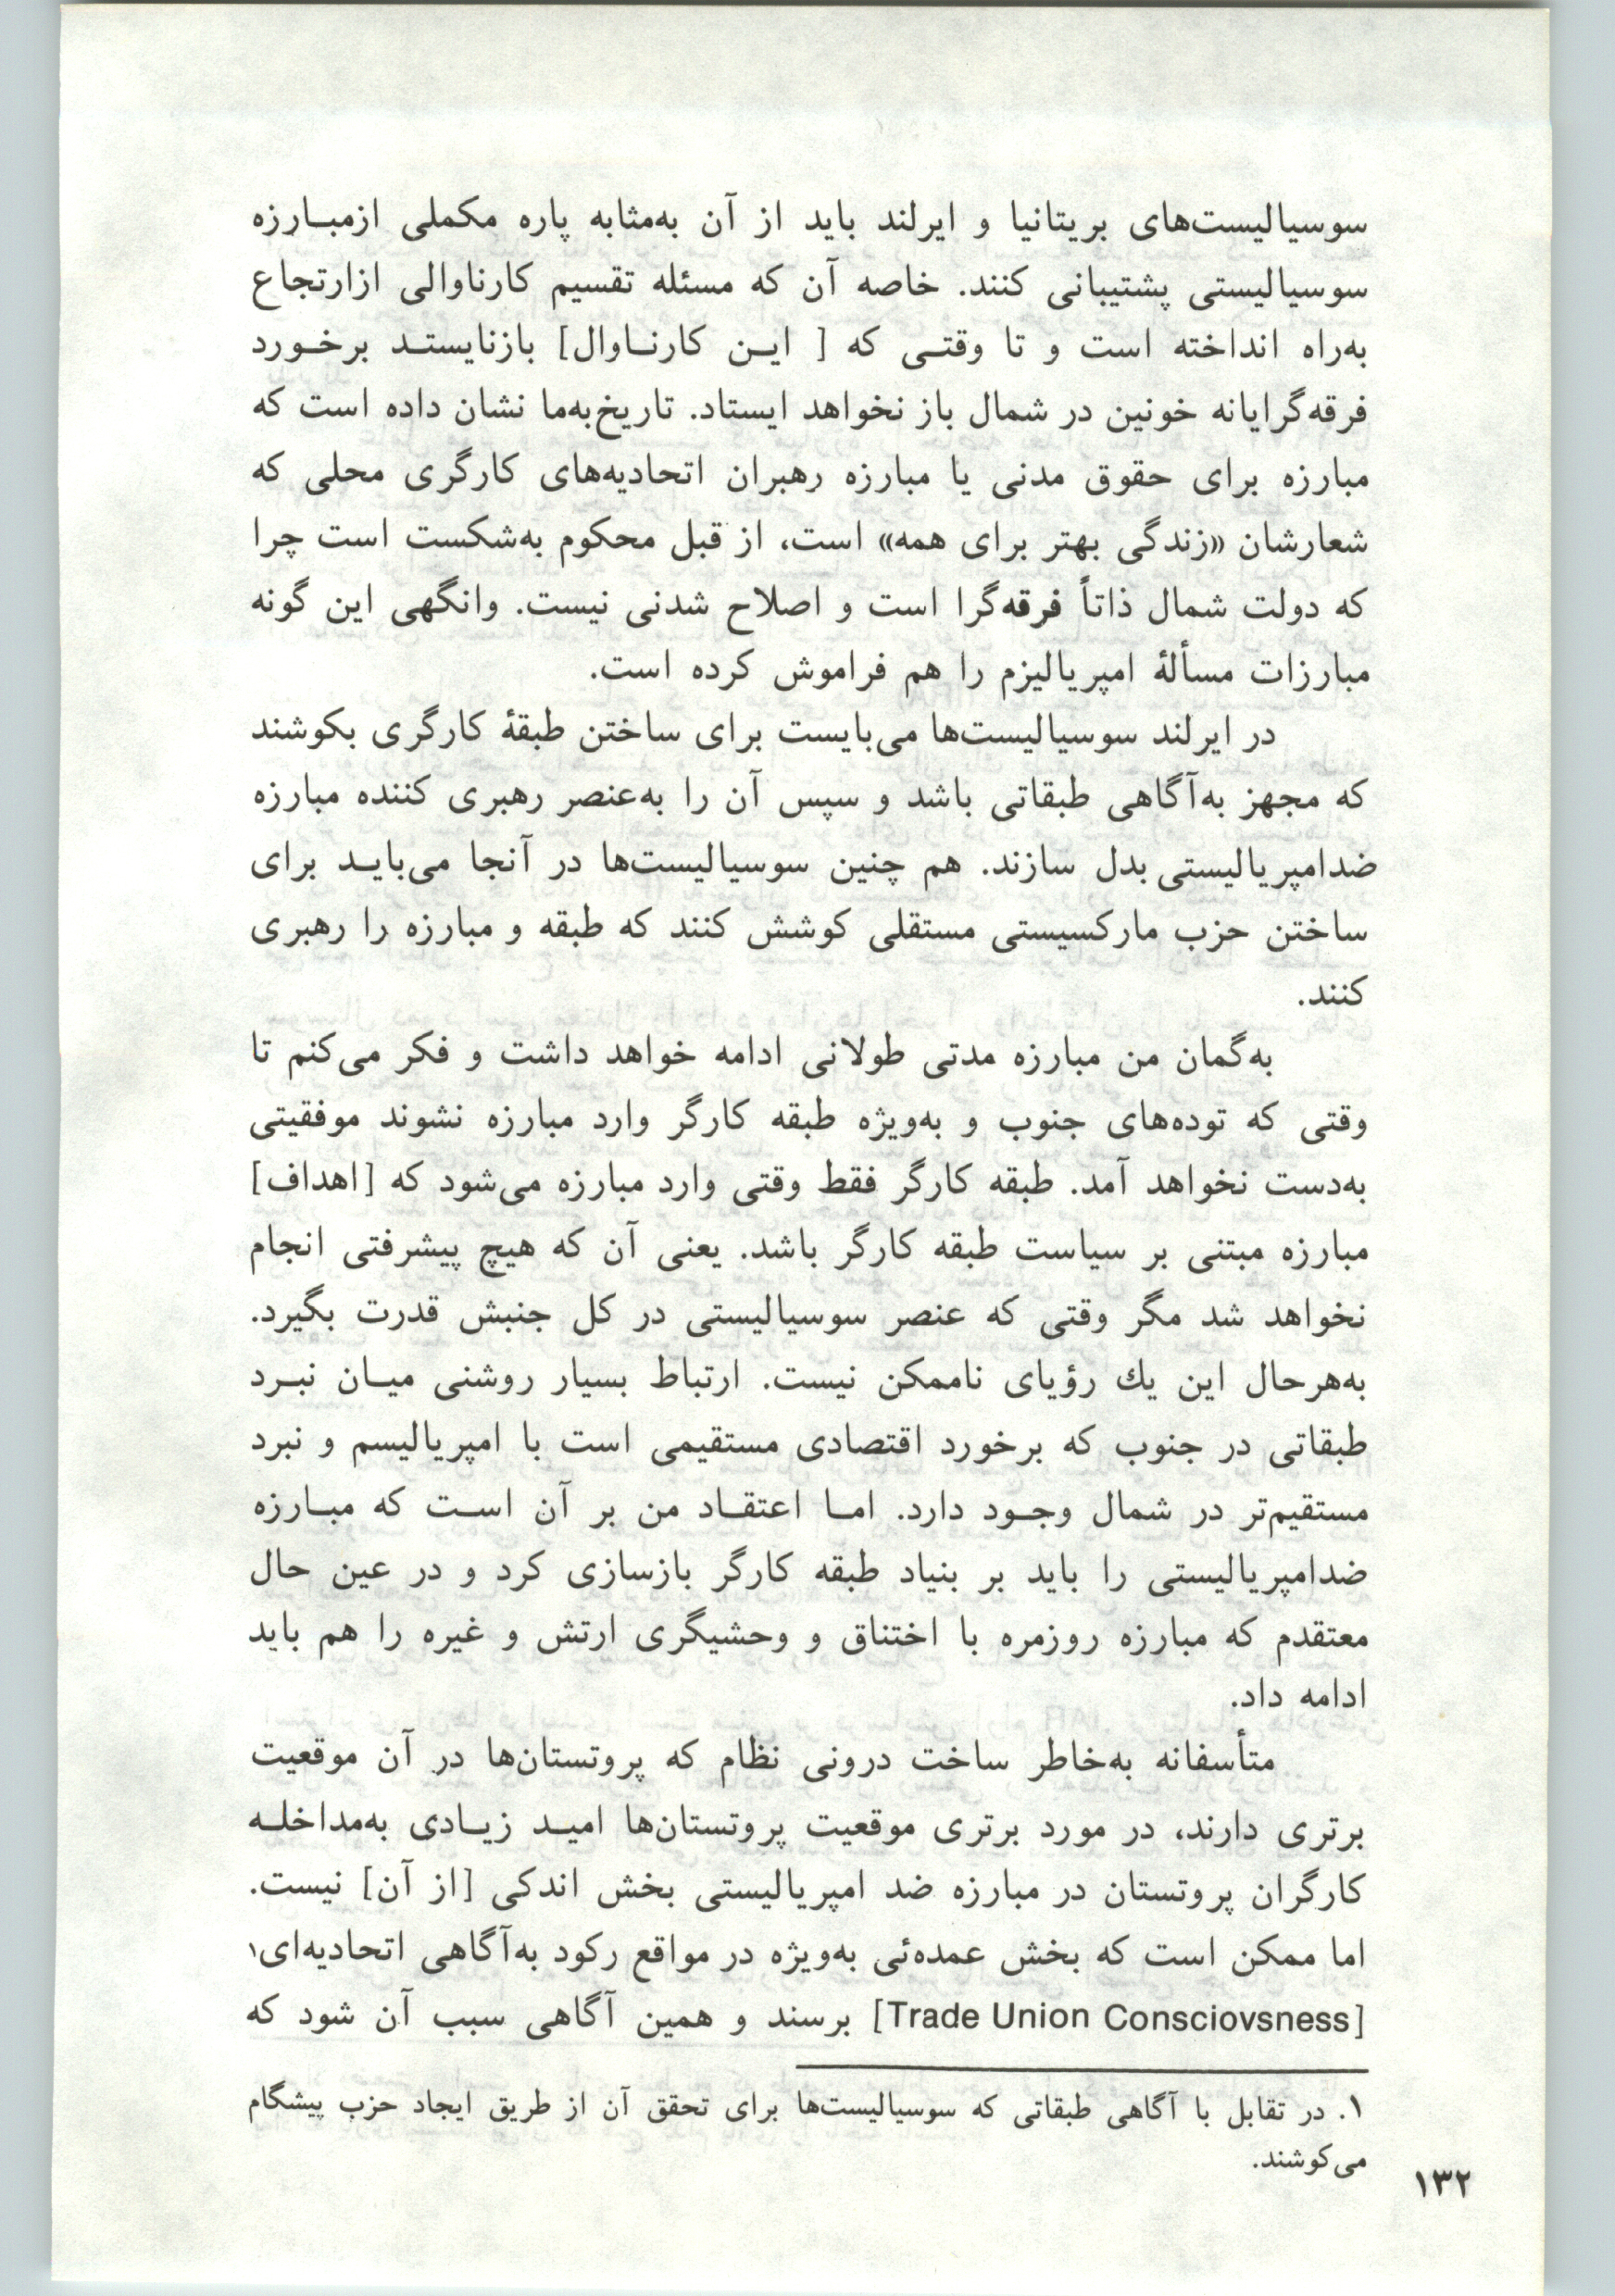 سوسیالیست‌های بریتانیا و ایرلند باید از آن به‌مثابه پاره مکملی ازمبـارزه
سوسیالیستی پشتیبانی کنند. خاصه آن که مسئله تقسیم کارناوالی ازارتجاع
به‌راه انداخته است و تا وقتـی که [ ایـن کارنـاوال] بازنایستـد برخـورد
فرقه‌گرایانه خونین در شمال باز نخواهد ایستاد. تاریخ‌به‌ما نشان داده است که
مبارزه برای حقوق مدنی یا مبارزه رهبران اتحادیه‌های کارگری محلی که
شعارشان «زندگی بهتر برای همه» است، از قبل محکوم به‌شکست است چرا
که دولت شمال ذاتاً فرقه‌گرا است و اصلاح شدنی نیست. وانگهی این گونه
مبارزات مسألهٔ امپریالیزم را هم فراموش کرده است.
در ایرلند سوسیالیست‌ها می‌بایست برای ساختن طبقهٔ کارگری بکوشند
که مجهز به‌آگاهی طبقاتی باشد و سپس آن را به‌عنصر رهبری کننده مبارزه
ضدامپریالیستی بدل سازند. هم چنین سوسیالیست‌ها در آنجا می‌بایـد برای
ساختن حزب مارکسیستی مستقلی کوشش کنند که طبقه و مبارزه را رهبری
کنند.
به‌گمان من مبارزه مدتی طولانی ادامه خواهد داشت و فکر می‌کنم تا
وقتی که توده‌های جنوب و به‌ویژه طبقه کارگر وارد مبارزه نشوند موفقیتی
به‌دست نخواهد آمد. طبقه کارگر فقط وقتی وارد مبارزه می‌شود که [اهداف]
مبارزه مبتنی بر سیاست طبقه کارگر باشد. یعنی آن که هیچ پیشرفتی انجام
نخواهد شد مگر وقتی که عنصر سوسیالیستی در کل جنبش قدرت بگیرد.
به‌هرحال این یك رؤیای ناممکن نیست. ارتباط بسیار روشنی میـان نبـرد
طبقاتی در جنوب که برخورد اقتصادی مستقیمی است با امپریالیسم و نبرد
مستقیم‌تر در شمال وجـود دارد. امـا اعتقـاد من بر آن اسـت که مبـارزه
ضدامپریالیستی را باید بر بنیاد طبقه کارگر بازسازی کرد و در عین حال
معتقدم که مبارزه روزمره با اختناق و وحشیگری ارتش و غیره را هم باید
ادامه داد.
متأسفانه به‌خاطر ساخت درونی نظام که پروتستان‌ها در آن موقعیت
برتری دارند، در مورد برتری موقعیت پروتستان‌ها امیـد زیـادی به‌مداخلـه
کارگران پروتستان در مبارزه ضد امپریالیستی بخش اندکی [از آن] نیست.
اما ممکن است که بخش عمده‌ئی به‌ویژه در مواقع رکود به‌آگاهی اتحادیه‌ای۱
[Trade Union Consciovsness] برسند و همین آگاهی سبب آن شود که
۱. در تقابل با آگاهی طبقاتی که سوسیالیست‌ها برای تحقق آن از طریق ایجاد حزب پیشگام
می‌کوشند.
۱۳۲